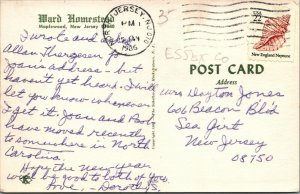 Ward Homestead
Maplewood, New Jersey
PM
1986
USA
22
New England Neptune
POST CARD
Address
I wrote and asked
Allan Thurgesen for
Joan's address - but
haven't yet heard. I will
let you know whenever
I get it. Joan and Bob
have moved recently
to somewhere in North
Carolina.
Hope the New Year
will be good to both of you
Love, - Dorothy S.
Mrs Dayton Jones
606 Beacon Blvd
Sea Girt
New Jersey
08750